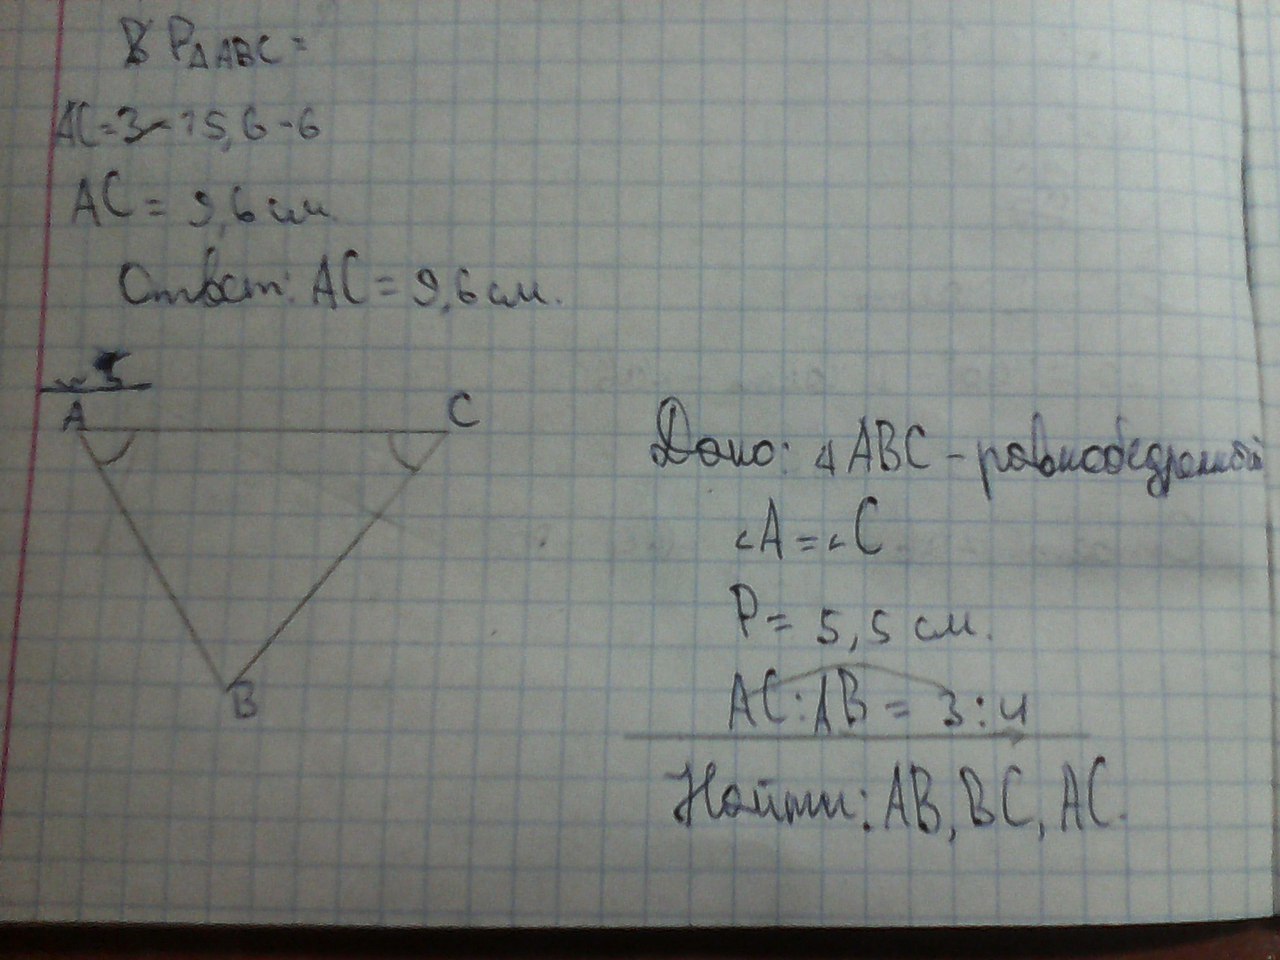 P△ABC =
AC = 15,6 - 6
AC = 9,6 см
Ответ: AC = 9,6 см.
5
A
C
B
Дано: △ABC - равнобедренный
∠A = ∠C
P = 5,5 см.
AC : AB = 3 : 4
Найти: AB, BC, AC.